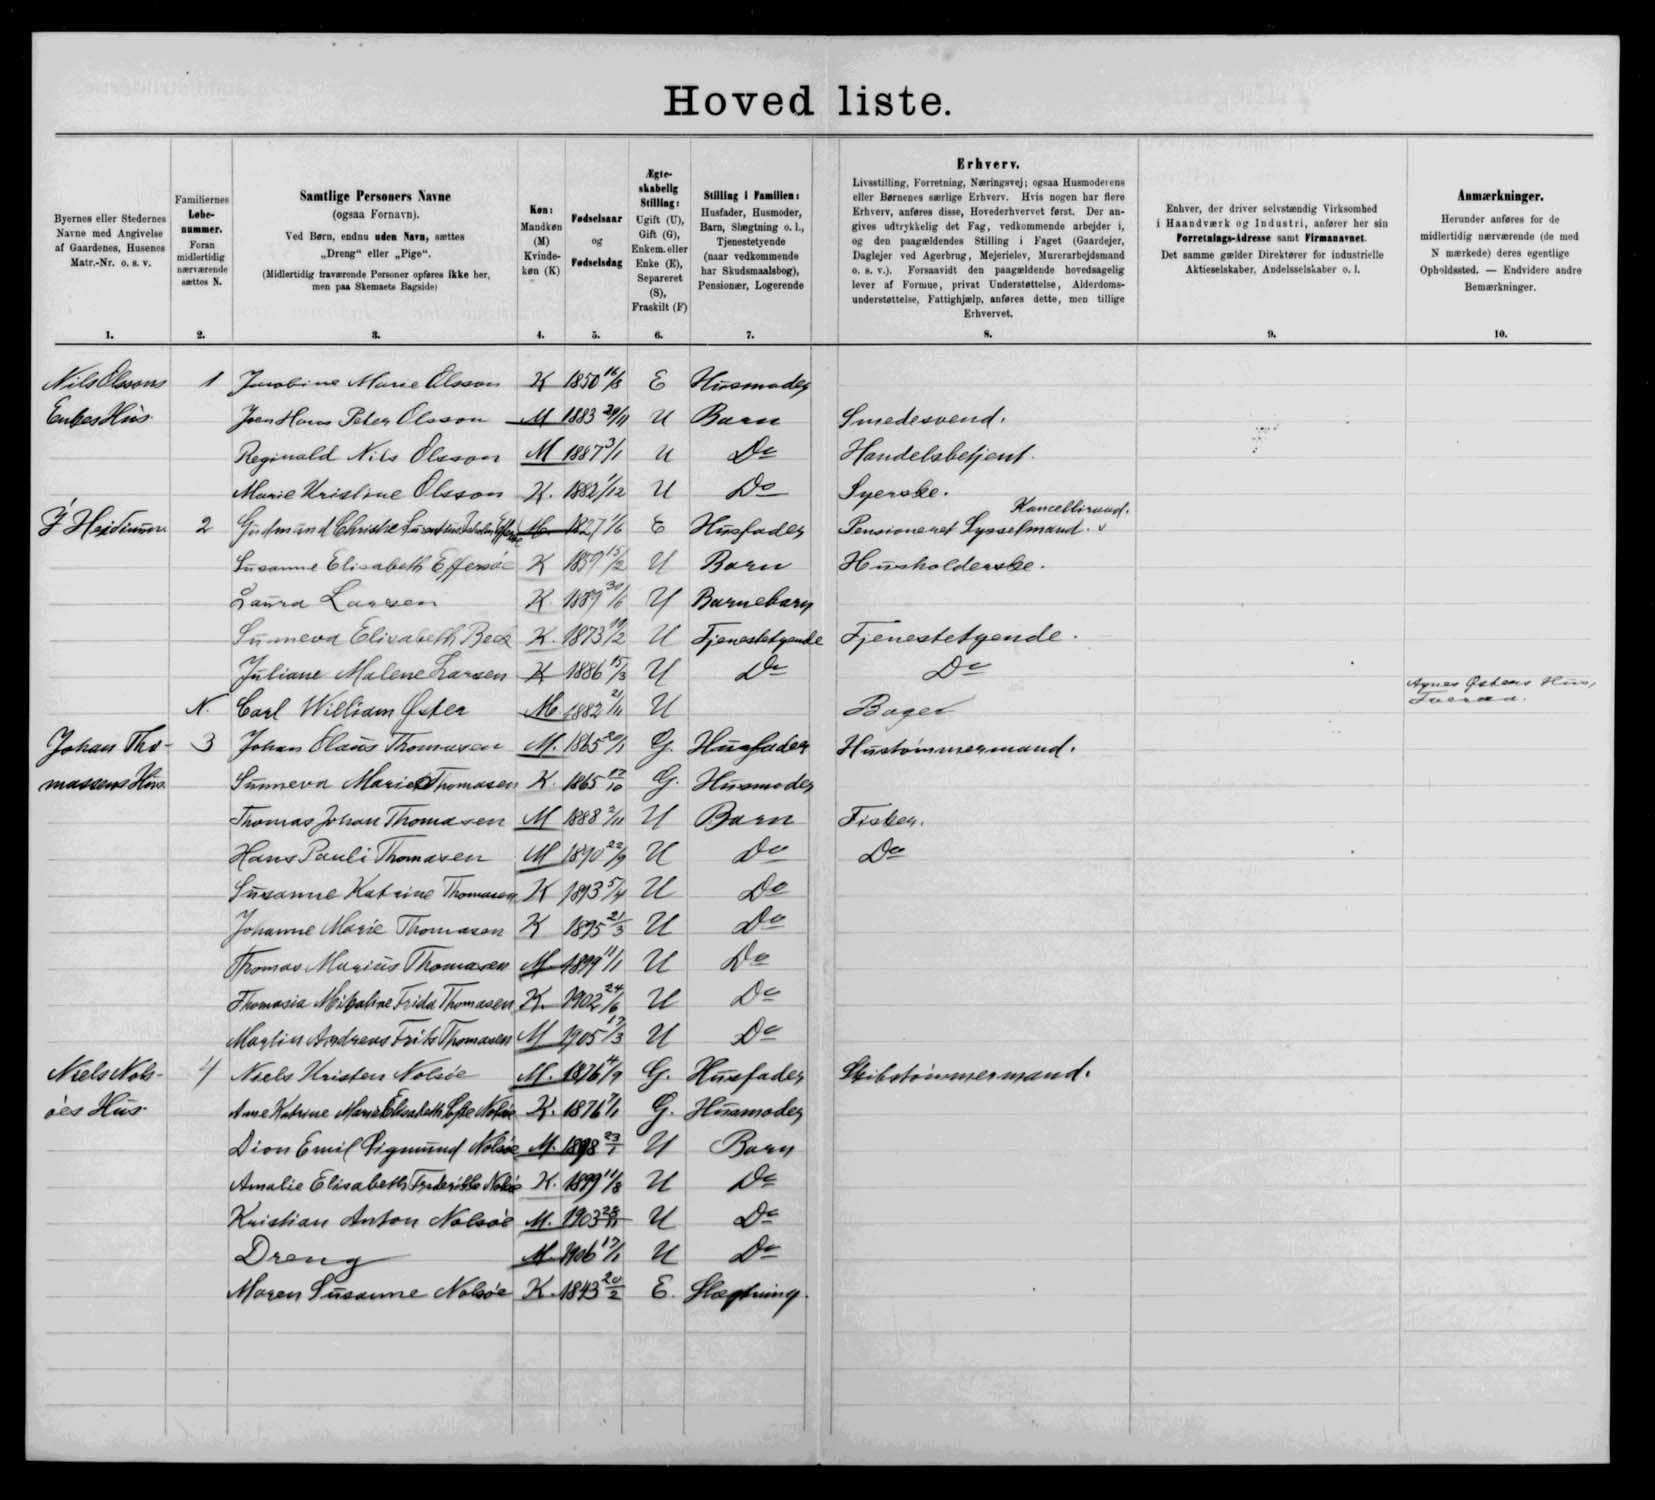 Hoved liste.
Byernes eller Stedernes
Navne med Angivelse
af Gaardenes, Husenes
Matr.-Nr. o. s. v.
1.
Familiernes
Løbe-
nummer.
Foran
midlertidig
nærværende
sættes N.
2.
Samtlige Personers Navne
(ogsaa Fornavn).
Ved Børn, endnu uden Navn, sættes
„Dreng" eller „Pige".
(Midlertidig fraværende Personer opføres ikke her,
men paa Skemaets Bagside)
3.
Køn:
Mandkøn
(M)
Kvinde-
køn (K)
4.
Fødselsaar
og
Fødselsdag
5.
Ægte-
skabelig
Stilling:
Ugift (U),
Gift (G),
Enkem. eller
Enke (E),
Separeret
(S),
Fraskilt (F)
6.
Stilling i Familien:
Husfader, Husmoder,
Barn, Slægtning o. l.,
Tjenestetyende
(naar vedkommende
har Skudsmaalsbog),
Pensionær, Logerende
7.
Erhverv.
Livsstilling, Forretning, Næringsvej; ogsaa Husmoderens
eller Børnenes særlige Erhverv. Hvis nogen har flere
Erhverv, anføres disse, Hovederhvervet først. Der an-
gives udtrykkelig det Fag, vedkommende arbejder i,
og den paagældendes Stilling i Faget (Gaardejer,
Daglejer ved Agerbrug, Mejerielev, Murerarbejdsmand
o. s. v.). Forsaavidt den paagældende hovedsagelig
lever af Formue, privat Understøttelse, Alderdoms-
understøttelse, Fattighjælp, anføres dette, men tillige
Erhvervet.
8.
Enhver, der driver selvstændig Virksomhed
i Haandværk og Industri, anfører her sin
Forretnings-Adresse samt Firmanavnet.
Det samme gælder Direktører for industrielle
Aktieselskaber, Andelsselskaber o. l.
9.
Anmærkninger.
Herunder anføres for de
midlertidig nærværende (de med
N mærkede) deres egentlige
Opholdssted. — Endvidere andre
Bemærkninger.
10.
Nils Olssons 1 Jacobine Marie Olsson K 1850 16/8 E Husmoder
Enkes Hus Jens Hans Peter Olsson M 1883 29/11 U Barn Smedesvend.
Reginald Nils Olsson M 1887 3/1 U Do Handelsbetjent.
Marie Kristine Olsson K. 1882 1/12 U Do Syerske.
Kancelliraad.
2 Gudmund Christie M 1827 1/6 E Husfader Pensioneret Sysselmand.
Susanne Elisabeth Effersöe K 1859 15/2 U Barn Husholderske.
Laura Larsen K. 1889 30/6 U Barnebarn
Sunneva Elisabeth Beck K. 1873 19/2 U Tjenestetyende Tjenestetyende.
Juliane Malene Larsen K 1886 15/3 U Do Do
N. Carl William Øster M 1882 21/11 U Bager Agnes Østers Hus,
Tveraa.
Johan Tho- 3 Johan Claus Thomasen M. 1865 20/1 G. Husfader Hustömmermand.
massens Hus. Sunneva Marie Thomasen K. 1865 17/10 G. Husmoder
Thomas Johan Thomasen M 1888 2/11 U Barn Fisker.
Hans Pauli Thomasen M 1890 22/9 U Do Do
Susanne Katrine Thomasen K 1893 5/4 U Do
Johanne Marie Thomasen K 1895 21/3 U Do
Thomas Marius Thomasen M 1899 11/1 U Do
Thomasia Mikaline Frida Thomasen K. 1902 24/6 U Do
Martin Andreas Frits Thomasen M 1905 17/3 U Do
Niels Nols- 4 Niels Kristen Nolsöe M. 1876 4/9 G. Husfader Skibstömmermand.
öes Hus. Ane Katrine Marie Elisabeth Nolsöe K. 1876 7/1 G. Husmoder
Dion Emil Sigmund Nolsöe M. 1898 23/1 U Barn
Amalie Elisabeth Nolsöe K. 1899 11/8 U Do
Kristian Anton Nolsöe M. 1903 28/11 U Do
Dreng M. 1906 17/1 U Do
Maren Susanne Nolsöe K. 1843 20/2 E. Slægtning.